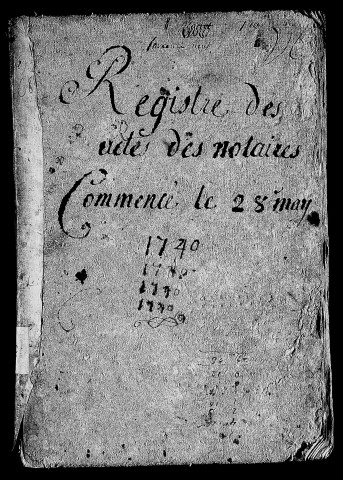 Registre des
actes des notaires
Commencé le 28 may
1740
1740
1740
1740